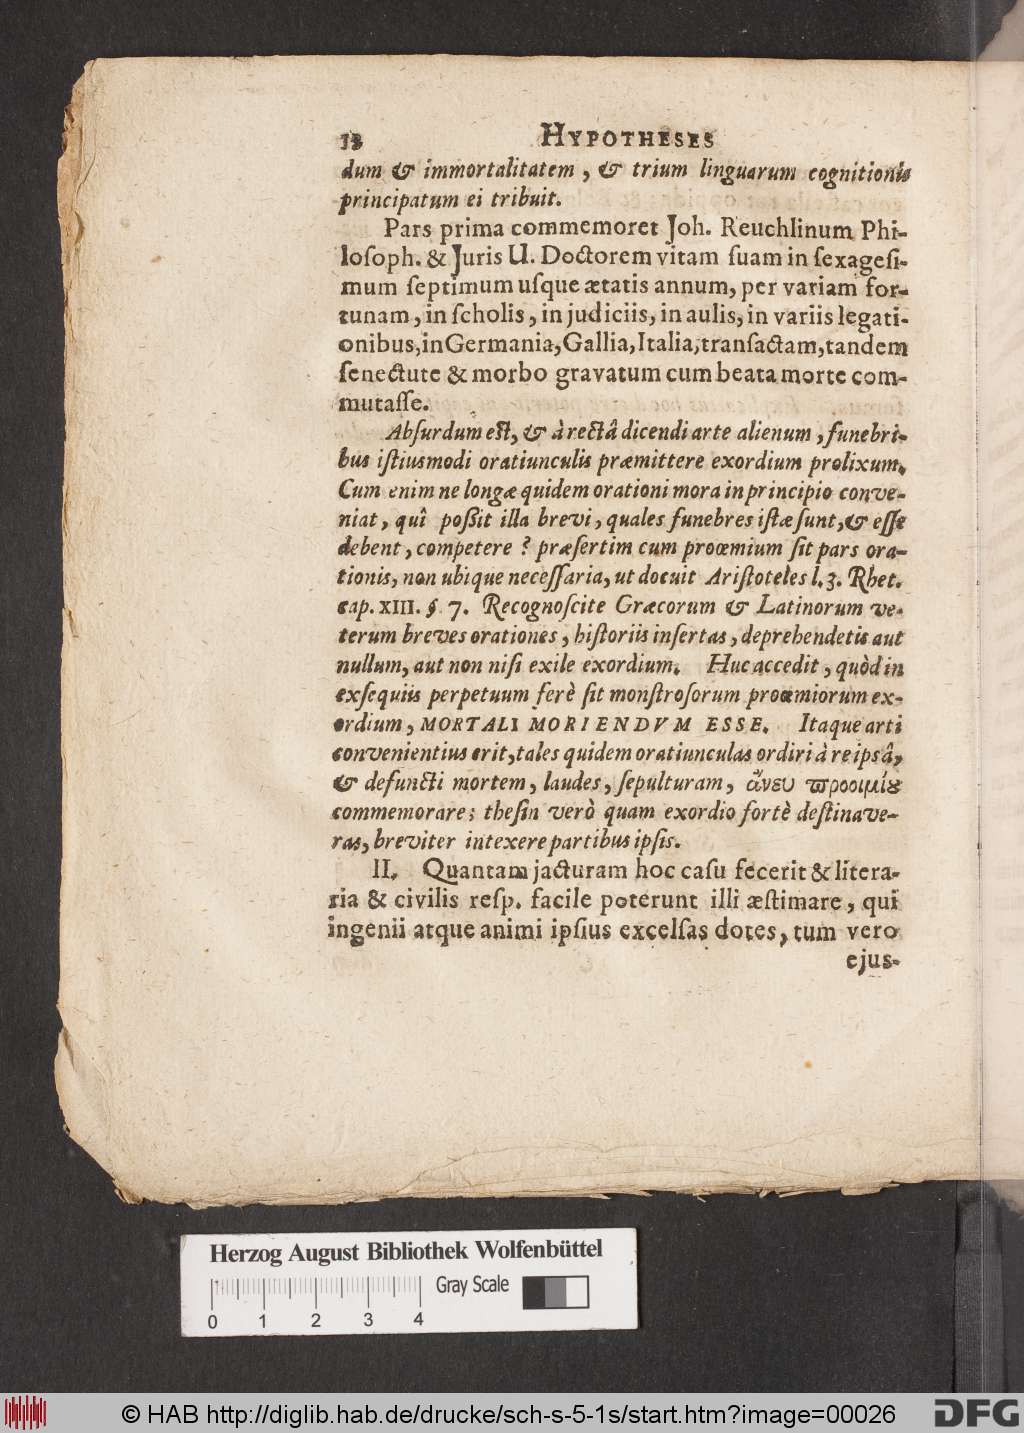 18 HYPOTHESES
dum & immortalitatem, & trium linguarum cognitionis
principatum ei tribuit.
Pars prima commemoret Joh. Reuchlinum Phi-
loſoph. & Juris U. Doctorem vitam ſuam in ſexageſi-
mum ſeptimum uſque ætatis annum, per variam for-
tunam, in ſcholis, in judiciis, in aulis, in variis legati-
onibus, in Germania, Gallia, Italia, tranſactam, tandem
ſenectute & morbo gravatum cum beata morte com-
mutaſſe.
Abſurdum eſt, & à rectâ dicendi arte alienum, funebri-
bus iſtiusmodi oratiunculis præmittere exordium prolixum.
Cum enim ne longæ quidem orationi mora in principio conve-
niat, quî poßit illa brevi, quales funebres iſtæ ſunt, & eſſe
debent, competere? præſertim cum proœmium ſit pars ora-
tionis, non ubique neceſſaria, ut docuit Ariſtoteles l. 3. Rhet.
cap. XIII. § 7. Recognoſcite Græcorum & Latinorum ve-
terum breves orationes, hiſtoriis inſertas, deprehendetis aut
nullum, aut non niſi exile exordium. Huc accedit, quòd in
exſequiis perpetuum ferè ſit monſtroſorum proœmiorum ex-
ordium, MORTALI MORIENDVM ESSE. Itaque arti
convenientius erit, tales quidem oratiunculas ordiri à re ipsâ,
& defuncti mortem, laudes, ſepulturam, ἄνευ ϖροοιμίȣ
commemorare; theſin verò quam exordio fortè deſtinave-
ras, breviter intexere partibus ipſis.
II. Quantam jacturam hoc caſu fecerit & litera-
ria & civilis reſp. facile poterunt illi æſtimare, qui
ingenii atque animi ipſius excelſas dotes, tum vero
ejus-
Herzog August Bibliothek Wolfenbüttel
Gray Scale
0 1 2 3 4
© HAB http://diglib.hab.de/drucke/sch-s-5-1s/start.htm?image=00026
DFG